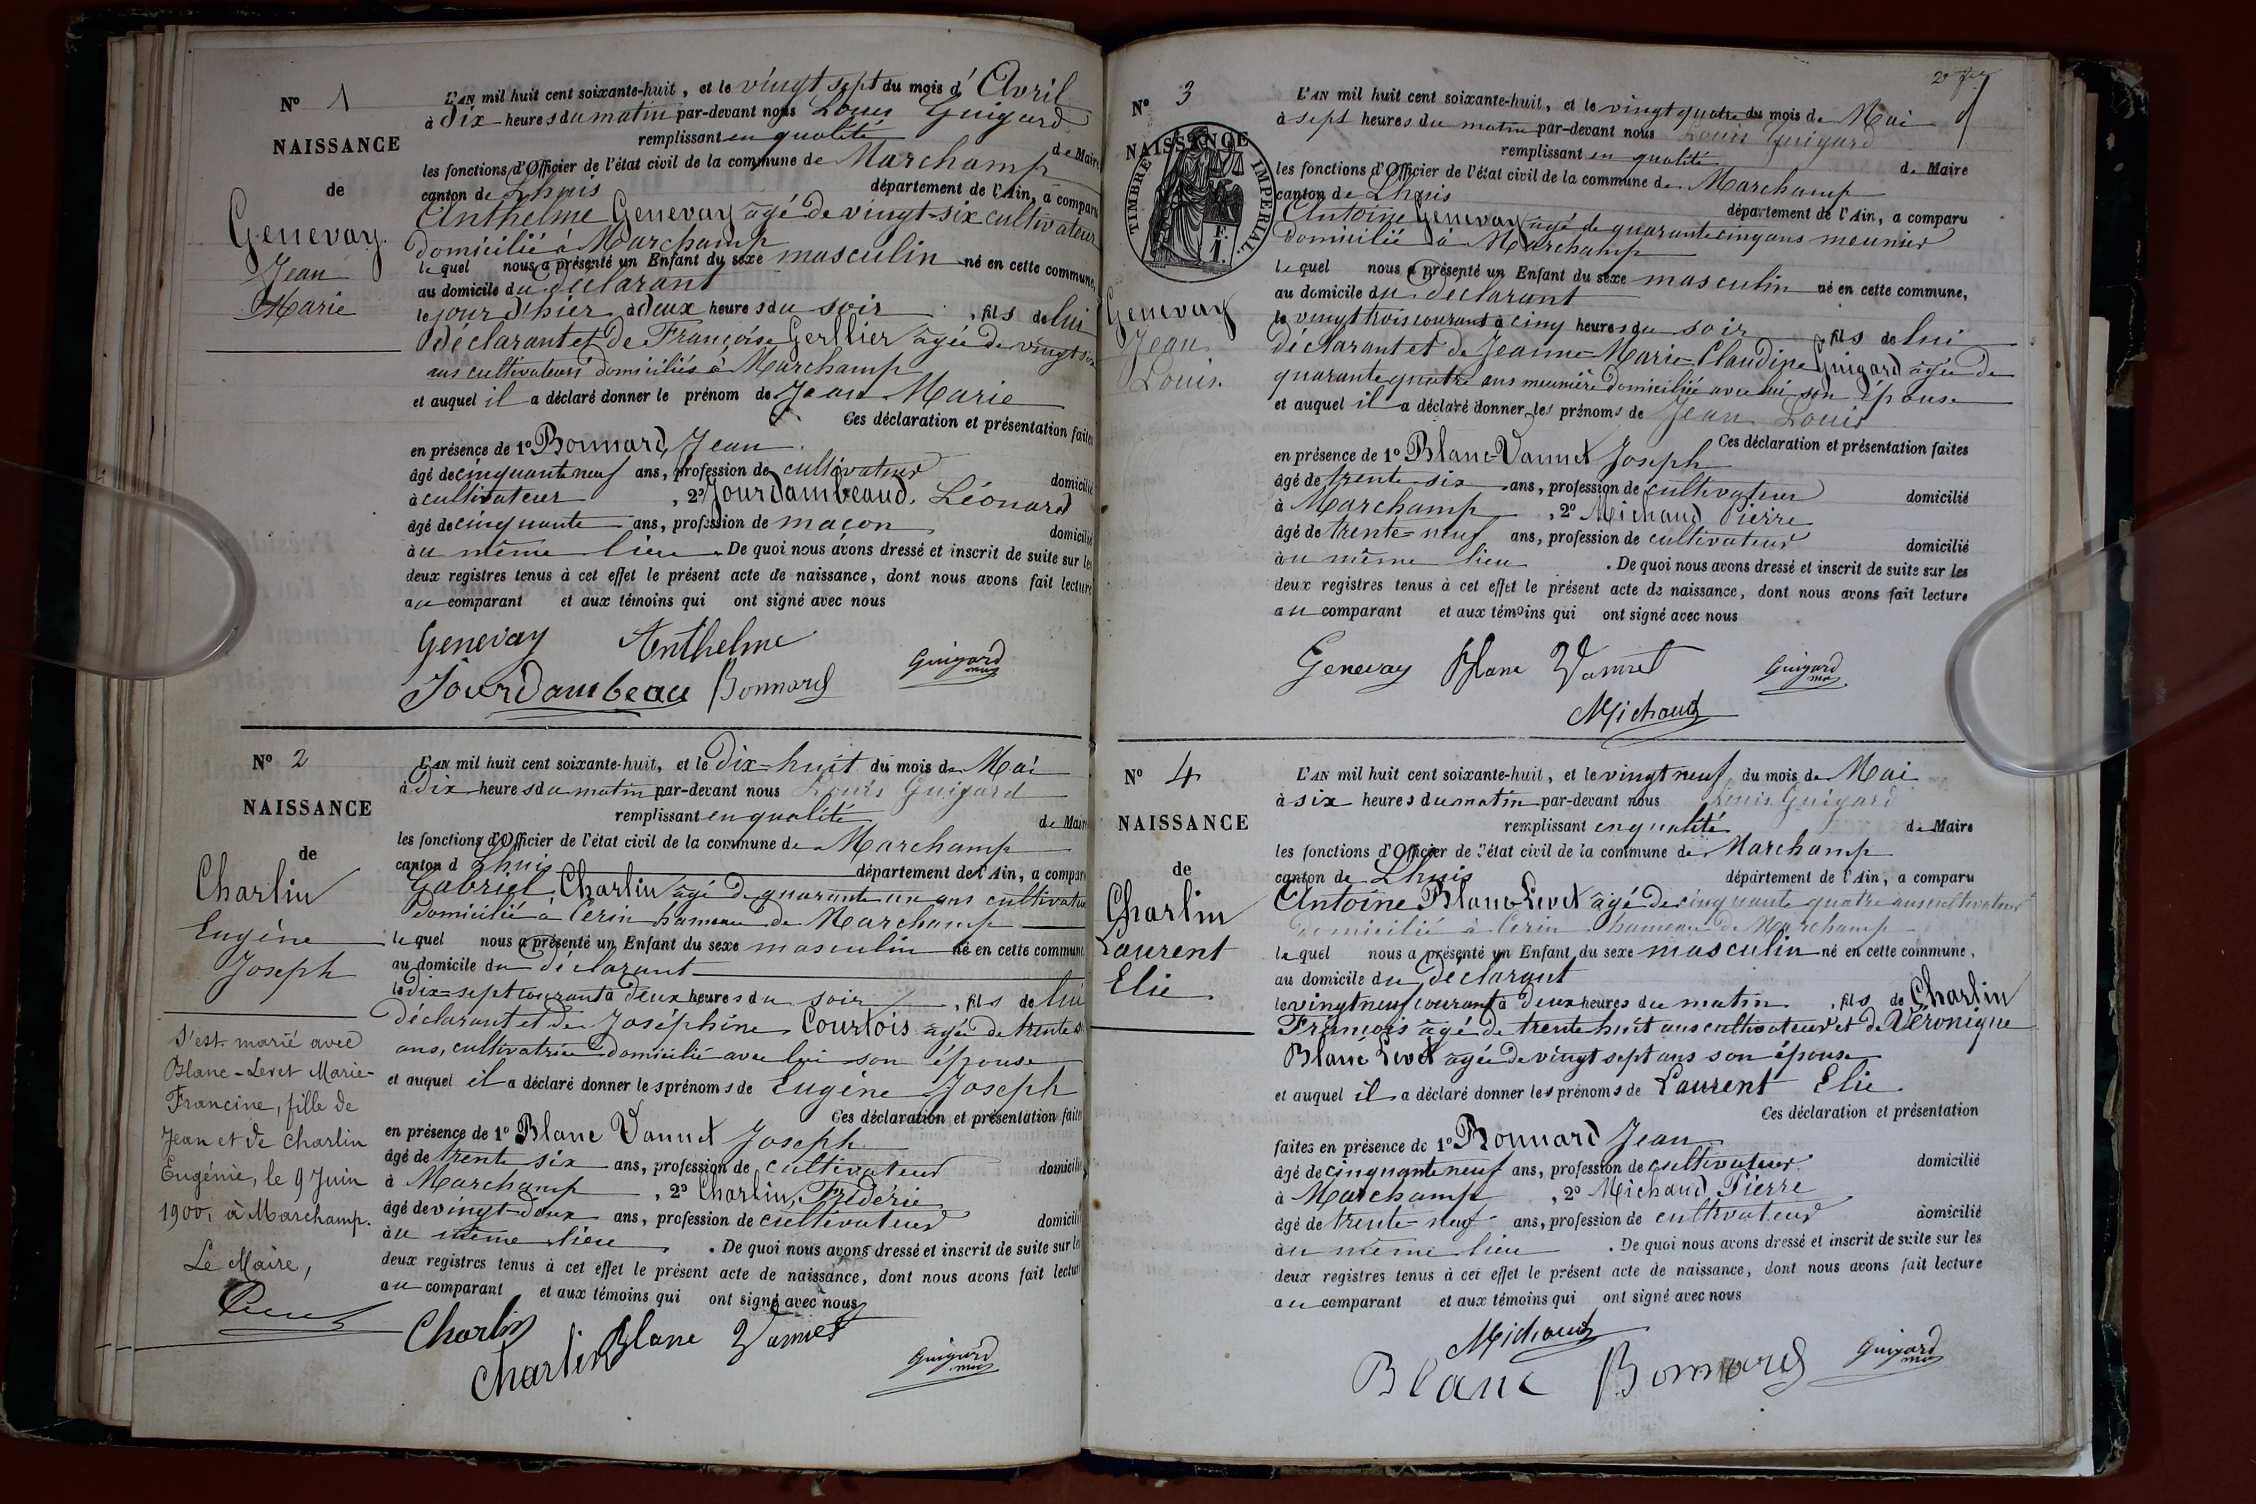 N° 1
NAISSANCE
de
Genevay
Jean
Marie
L'AN mil huit cent soixante-huit, et le vingt sept du mois d'Avril
à Dix heures du matin par-devant nous Louis Guigard
remplissant en qualité de Maire
les fonctions d'Officier de l'état civil de la commune de Marchamp
canton de Lhuis département de l'Ain, a comparu
Anthelme Genevay agé de vingt-six cultivateur
domicilié à Marchamp
lequel nous a présenté un Enfant du sexe masculin né en cette commune,
au domicile du déclarant
le jour d'hier à deux heures du soir, fils de lui
déclarant et de Françoise Gerllier agée de vingt six
ans cultivateurs domiciliés à Marchamp
et auquel il a déclaré donner le prénom de Jean Marie
Ces déclaration et présentation faites
en présence de 1° Bonnard Jean
âgé de cinquante neuf ans, profession de cultivateur domicilié
à cultivateur, 2° Jourdambeaud Léonard
âgé de cinquante ans, profession de maçon domicilié
au même lieu. De quoi nous avons dressé et inscrit de suite sur les
deux registres tenus à cet effet le présent acte de naissance, dont nous avons fait lecture
au comparant et aux témoins qui ont signé avec nous
Genevay Anthelme
Guigard
Jourdambeau Bonnard
N° 2
NAISSANCE
de
Charlin
Eugène
Joseph
S'est marié avec
Blanc-Levet Marie-
Francine, fille de
Jean et de Charlin
Eugénie, le 9 Juin
1900, à Marchamp.
Le Maire,
L'AN mil huit cent soixante-huit, et le Dix-huit du mois de Mai
à Dix heures du matin par-devant nous Louis Guigard
remplissant en qualité de Maire
les fonctions d'Officier de l'état civil de la commune de Marchamp
canton d Lhuis département de l'Ain, a comparu
Gabriel Charlin agé de quarante un ans cultivateur
domicilié à Cerin hameau de Marchamp
lequel nous a présenté un Enfant du sexe masculin né en cette commune
au domicile du déclarant
le dix-sept courant à deux heures du soir, fils de lui
déclarant et de Joséphine Courtois agée de trente
ans, cultivatrice domicilié avec lui son épouse
et auquel il a déclaré donner les prénoms de Eugène Joseph
Ces déclaration et présentation faites
en présence de 1° Blanc Vannet Joseph
âgé de trente six ans, profession de cultivateur domicilié
à Marchamp, 2° Charlin, Frédéric
âgé de vingt-deux ans, profession de cultivateur domicilié
au même lieu. De quoi nous avons dressé et inscrit de suite sur les
deux registres tenus à cet effet le présent acte de naissance, dont nous avons fait lecture
au comparant et aux témoins qui ont signé avec nous
Charlin Blanc Vannet
Charlin
Guigard
N° 3
NAISSANCE
TIMBRE IMPERIAL
Genevay
Jean
Louis.
L'AN mil huit cent soixante-huit, et le vingt quatre du mois de Mai
à sept heures du matin par-devant nous Louis Guigard
remplissant en qualité de Maire
les fonctions d'Officier de l'état civil de la commune de Marchamp
canton de Lhuis
département de l'Ain, a comparu
Antoine Genevay agé de quarante cinq ans meunier
domicilié à Marchamp
lequel nous a présenté un Enfant du sexe masculin né en cette commune,
au domicile du déclarant
le vingt trois courant à cinq heures du soir, fils de lui
déclarant et de Jeanne-Marie-Claudine Guigard agée de
quarante quatre ans meunière domiciliée avec lui son épouse
et auquel il a déclaré donner les prénoms de Jean Louis
Ces déclaration et présentation faites
en présence de 1° Blanc-Vannet Joseph
âgé de trente six ans, profession de cultivateur domicilié
à Marchamp, 2° Michaud Pierre
âgé de trente-neuf ans, profession de cultivateur domicilié
au même lieu. De quoi nous avons dressé et inscrit de suite sur les
deux registres tenus à cet effet le présent acte de naissance, dont nous avons fait lecture
au comparant et aux témoins qui ont signé avec nous
Genevay Blanc Vannet Guigard
Michaud
N° 4
NAISSANCE
de
Charlin
Laurent
Elie
L'AN mil huit cent soixante-huit, et le vingt neuf du mois de Mai
à six heures du matin par-devant nous Louis Guigard
remplissant en qualité de Maire
les fonctions d'Officier de l'état civil de la commune de Marchamp
canton de Lhuis département de l'Ain, a comparu
Antoine Blanc-Levet agé de cinquante quatre ans cultivateur
domicilié à Cerin hameau de Marchamp
lequel nous a présenté un Enfant du sexe masculin né en cette commune,
au domicile du déclarant
le vingt neuf courant à deux heures du matin, fils de Charlin
François agé de trente huit ans cultivateur et de Véronique
Blanc Levet agée de vingt sept ans son épouse
et auquel il a déclaré donner les prénoms de Laurent Elie
Ces déclaration et présentation
faites en présence de 1° Bonnard Jean
âgé de cinquante neuf ans, profession de cultivateur domicilié
à Marchamp, 2° Michaud Pierre
âgé de trente-neuf ans, profession de cultivateur domicilié
au même lieu. De quoi nous avons dressé et inscrit de suite sur les
deux registres tenus à cet effet le présent acte de naissance, dont nous avons fait lecture
au comparant et aux témoins qui ont signé avec nous
Michaud
Blanc Bonnard Guigard